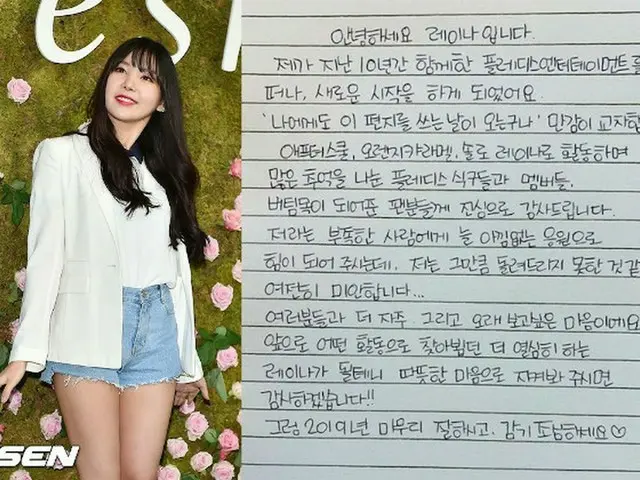 es
안녕하세요 레이나 입니다.
제가 지난 10년간 함께한 플레디스엔터테이먼트를
떠나, 새로운 시작을 하게 되었어요.
'나에게도 이 편지를 쓰는날이 오는구나' 만감이 교차하
애프터스쿨, 오렌지캬라멜, 솔로 레이나로 활동하며
많은 추억을 나눈 플레디스 식구들과 멤버들,
버팀목이 되어준 팬분들께 진심으로 감사드립니다.
저라는 부족한 사람에게 늘 아낌없는 응원으로
힘이 되어 주시는데, 저는 그만큼 돌려드리지 못한 것 같
여전히 미안합니다...
여러분들과 더 자주 그리고 오래 보고싶은 마음이에요
앞으로 어떤 활동으로 찾아뵙던 더 열심히 하는
레이나가 될테니 따뜻한 마음으로 지켜봐 주시면
감사하겠습니다!!
그럼 2019년 마무리 잘하시고, 감기 조심하세요♡
SEN